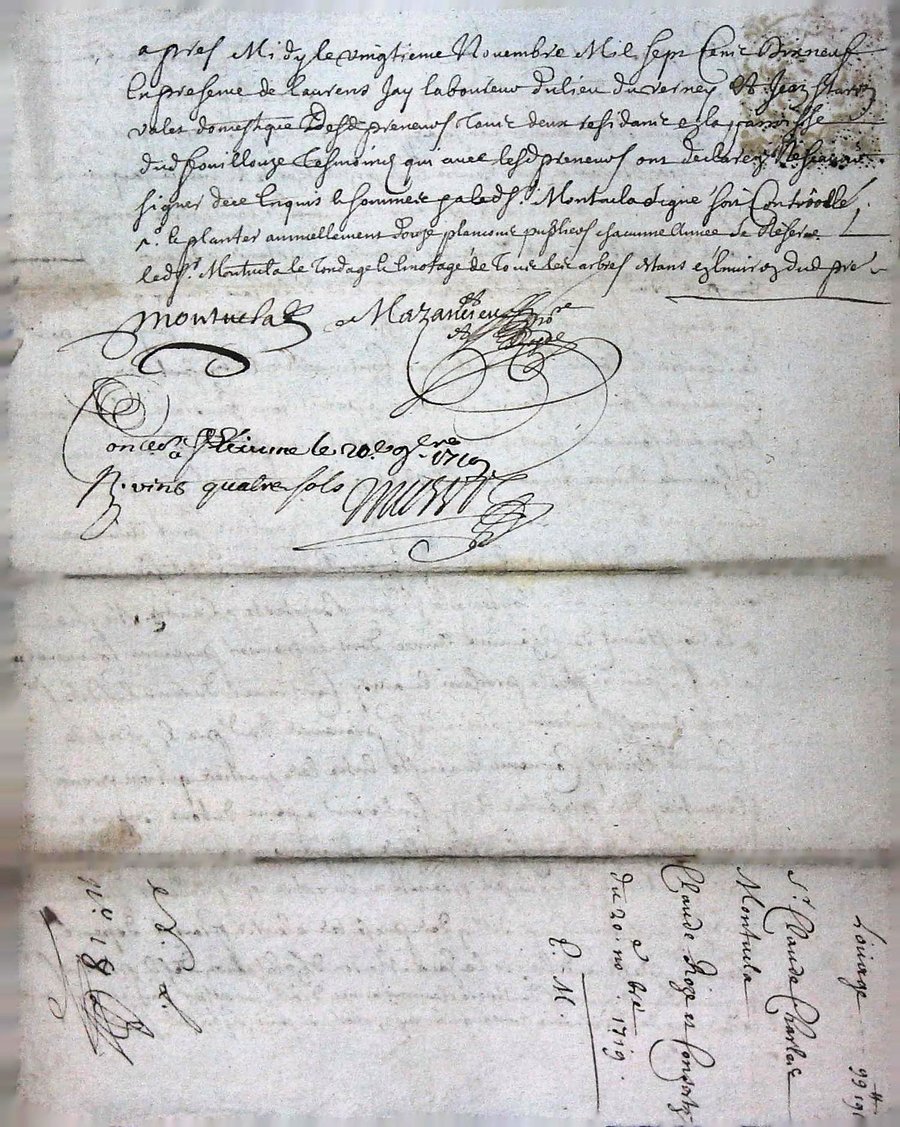 apres Midy le vingtieme Novembre Mil sept Cent Dixneuf
En presence de Laurens Jay laboureur du lieu du verney Et Jean
valet domestique Desd preneurs tout deux residant en la parroisse
dud fouillouze tesmoins qui avec lesd preneurs ont declarez Ne scavoir
signer de ce Enquis le sommes pa led sr. Montucla signe soit Controolle
le planter annuellement douze plançons chacune Année se Reserve
led sr. Montucla le tondage de Tous les arbres Estans dud pre
montucla
Mazancieu
St Etienne le 20e 9bre 1719
R. vint quatre sols
Louage 99 19
Sr Claude Charles
Montucla
a
Claude Roze et Consorts
du 20 nobre 1719.
E. M.
No. 18